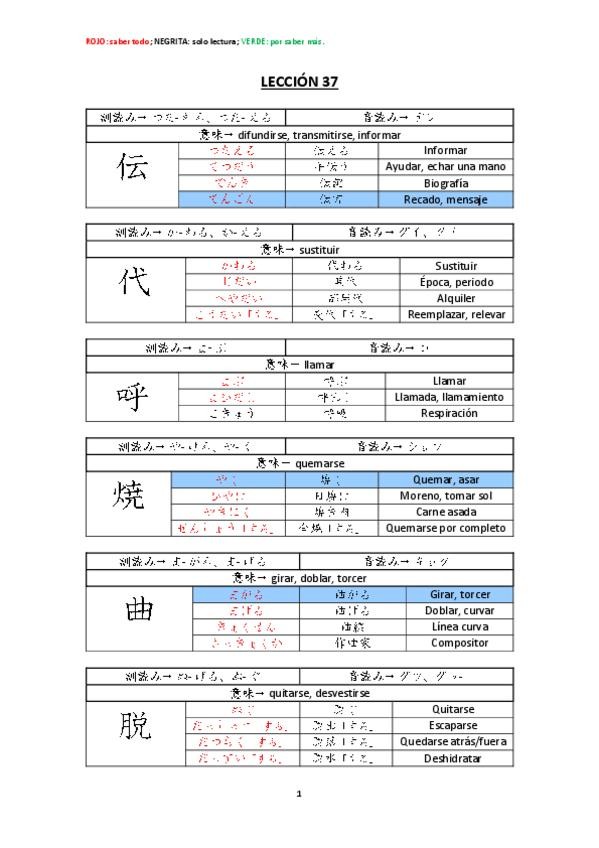 ROJO: saber todo; NEGRITA: solo lectura; VERDE: por saber más.
LECCIÓN 37
訓読み→ つた-わる、つた-える 音読み→ デン
意味→ difundirse, transmitirse, informar
伝
つたえる 伝える Informar
てつだう 手伝う Ayudar, echar una mano
でんき 伝記 Biografía
でんごん 伝言 Recado, mensaje
訓読み→ か-わる、か-える 音読み→ ダイ、タイ
意味→ sustituir
代
かわる 代わる Sustituir
じだい 時代 Época, periodo
へやだい 部屋代 Alquiler
こうたい「する」 交代「する」 Reemplazar, relevar
訓読み→ よ-ぶ 音読み→ コ
意味→ llamar
呼
よぶ 呼ぶ Llamar
よびだし 呼出し Llamada, llamamiento
こきゅう 呼吸 Respiración
訓読み→ や-ける、や-く 音読み→ ショウ
意味→ quemarse
焼
やく 焼く Quemar, asar
ひやけ 日焼け Moreno, tomar sol
やきにく 焼き肉 Carne asada
ぜんしょう「する」 全焼「する」 Quemarse por completo
訓読み→ ま-がる、ま-げる 音読み→ キョク
意味→ girar, doblar, torcer
曲
まがる 曲がる Girar, torcer
まげる 曲げる Doblar, curvar
きょくせん 曲線 Línea curva
さっきょくか 作曲家 Compositor
訓読み→ ぬ-げる、ぬ-ぐ 音読み→ ダツ、ダッ-
意味→ quitarse, desvestirse
脱
ぬぐ 脱ぐ Quitarse
だっしゅつ「する」 脱出「する」 Escaparse
だつらく「する」 脱落「する」 Quedarse atrás/fuera
だっすい「する」 脱水「する」 Deshidratar
1